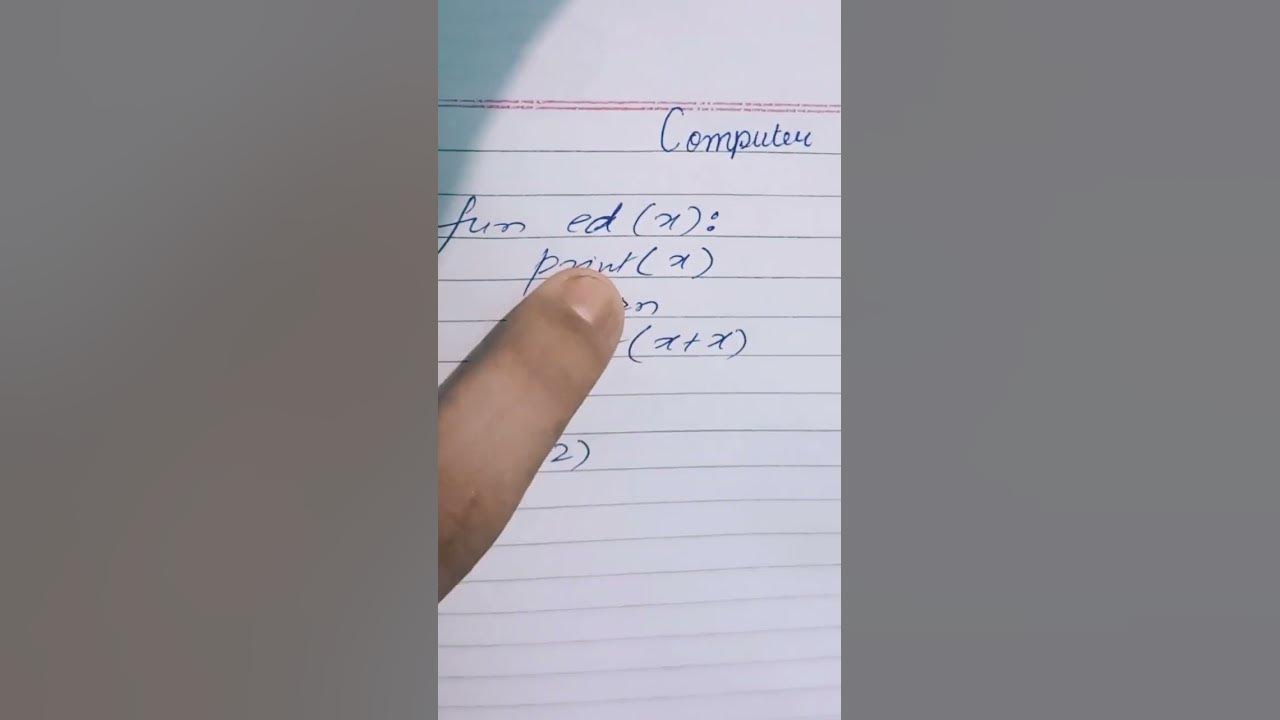 Computer
fun ed(x):
print(x)
(x+x)
2)